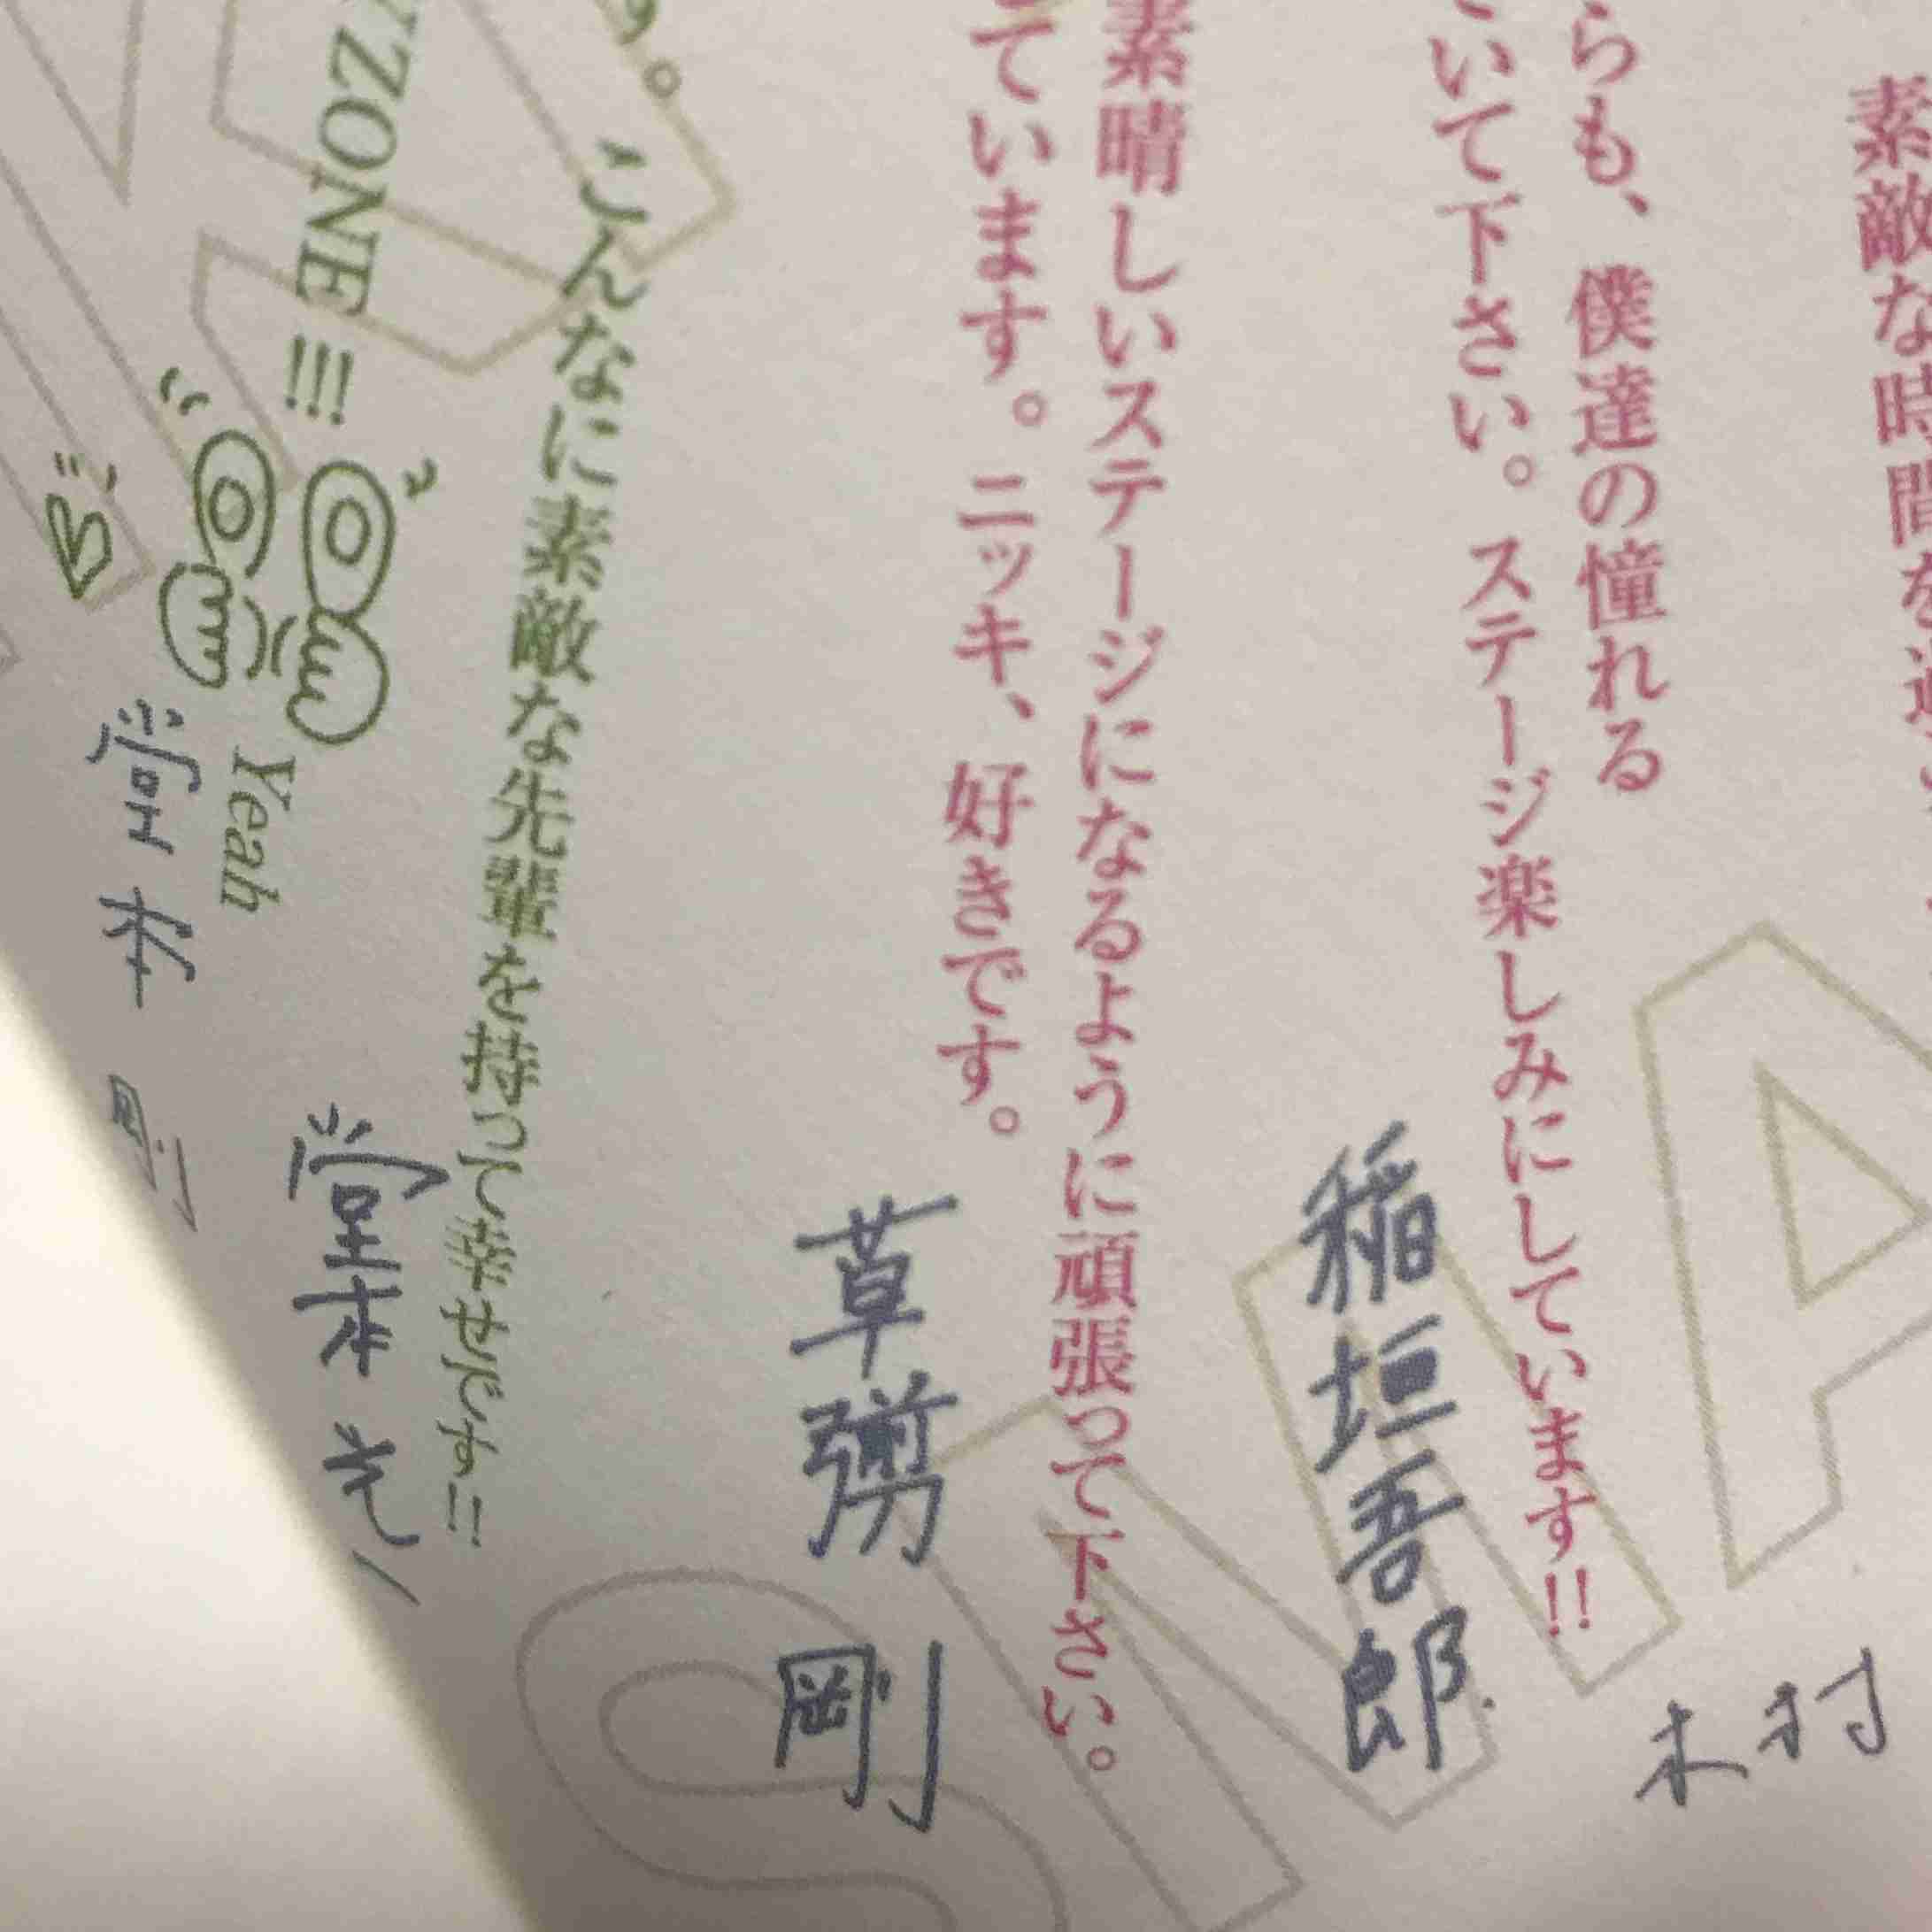 素敵な時間を
木村
らも、僕達の憧れる
いて下さい。ステージ楽しみにしています!!
稲垣吾郎
素晴しいステージになるように頑張って下さい。
ています。ニッキ、好きです。
草彅 剛
す。
こんなに素敵な先輩を持って幸せです!!
堂本 光一
YZONE!!!
Yeah
堂本 剛
SMA